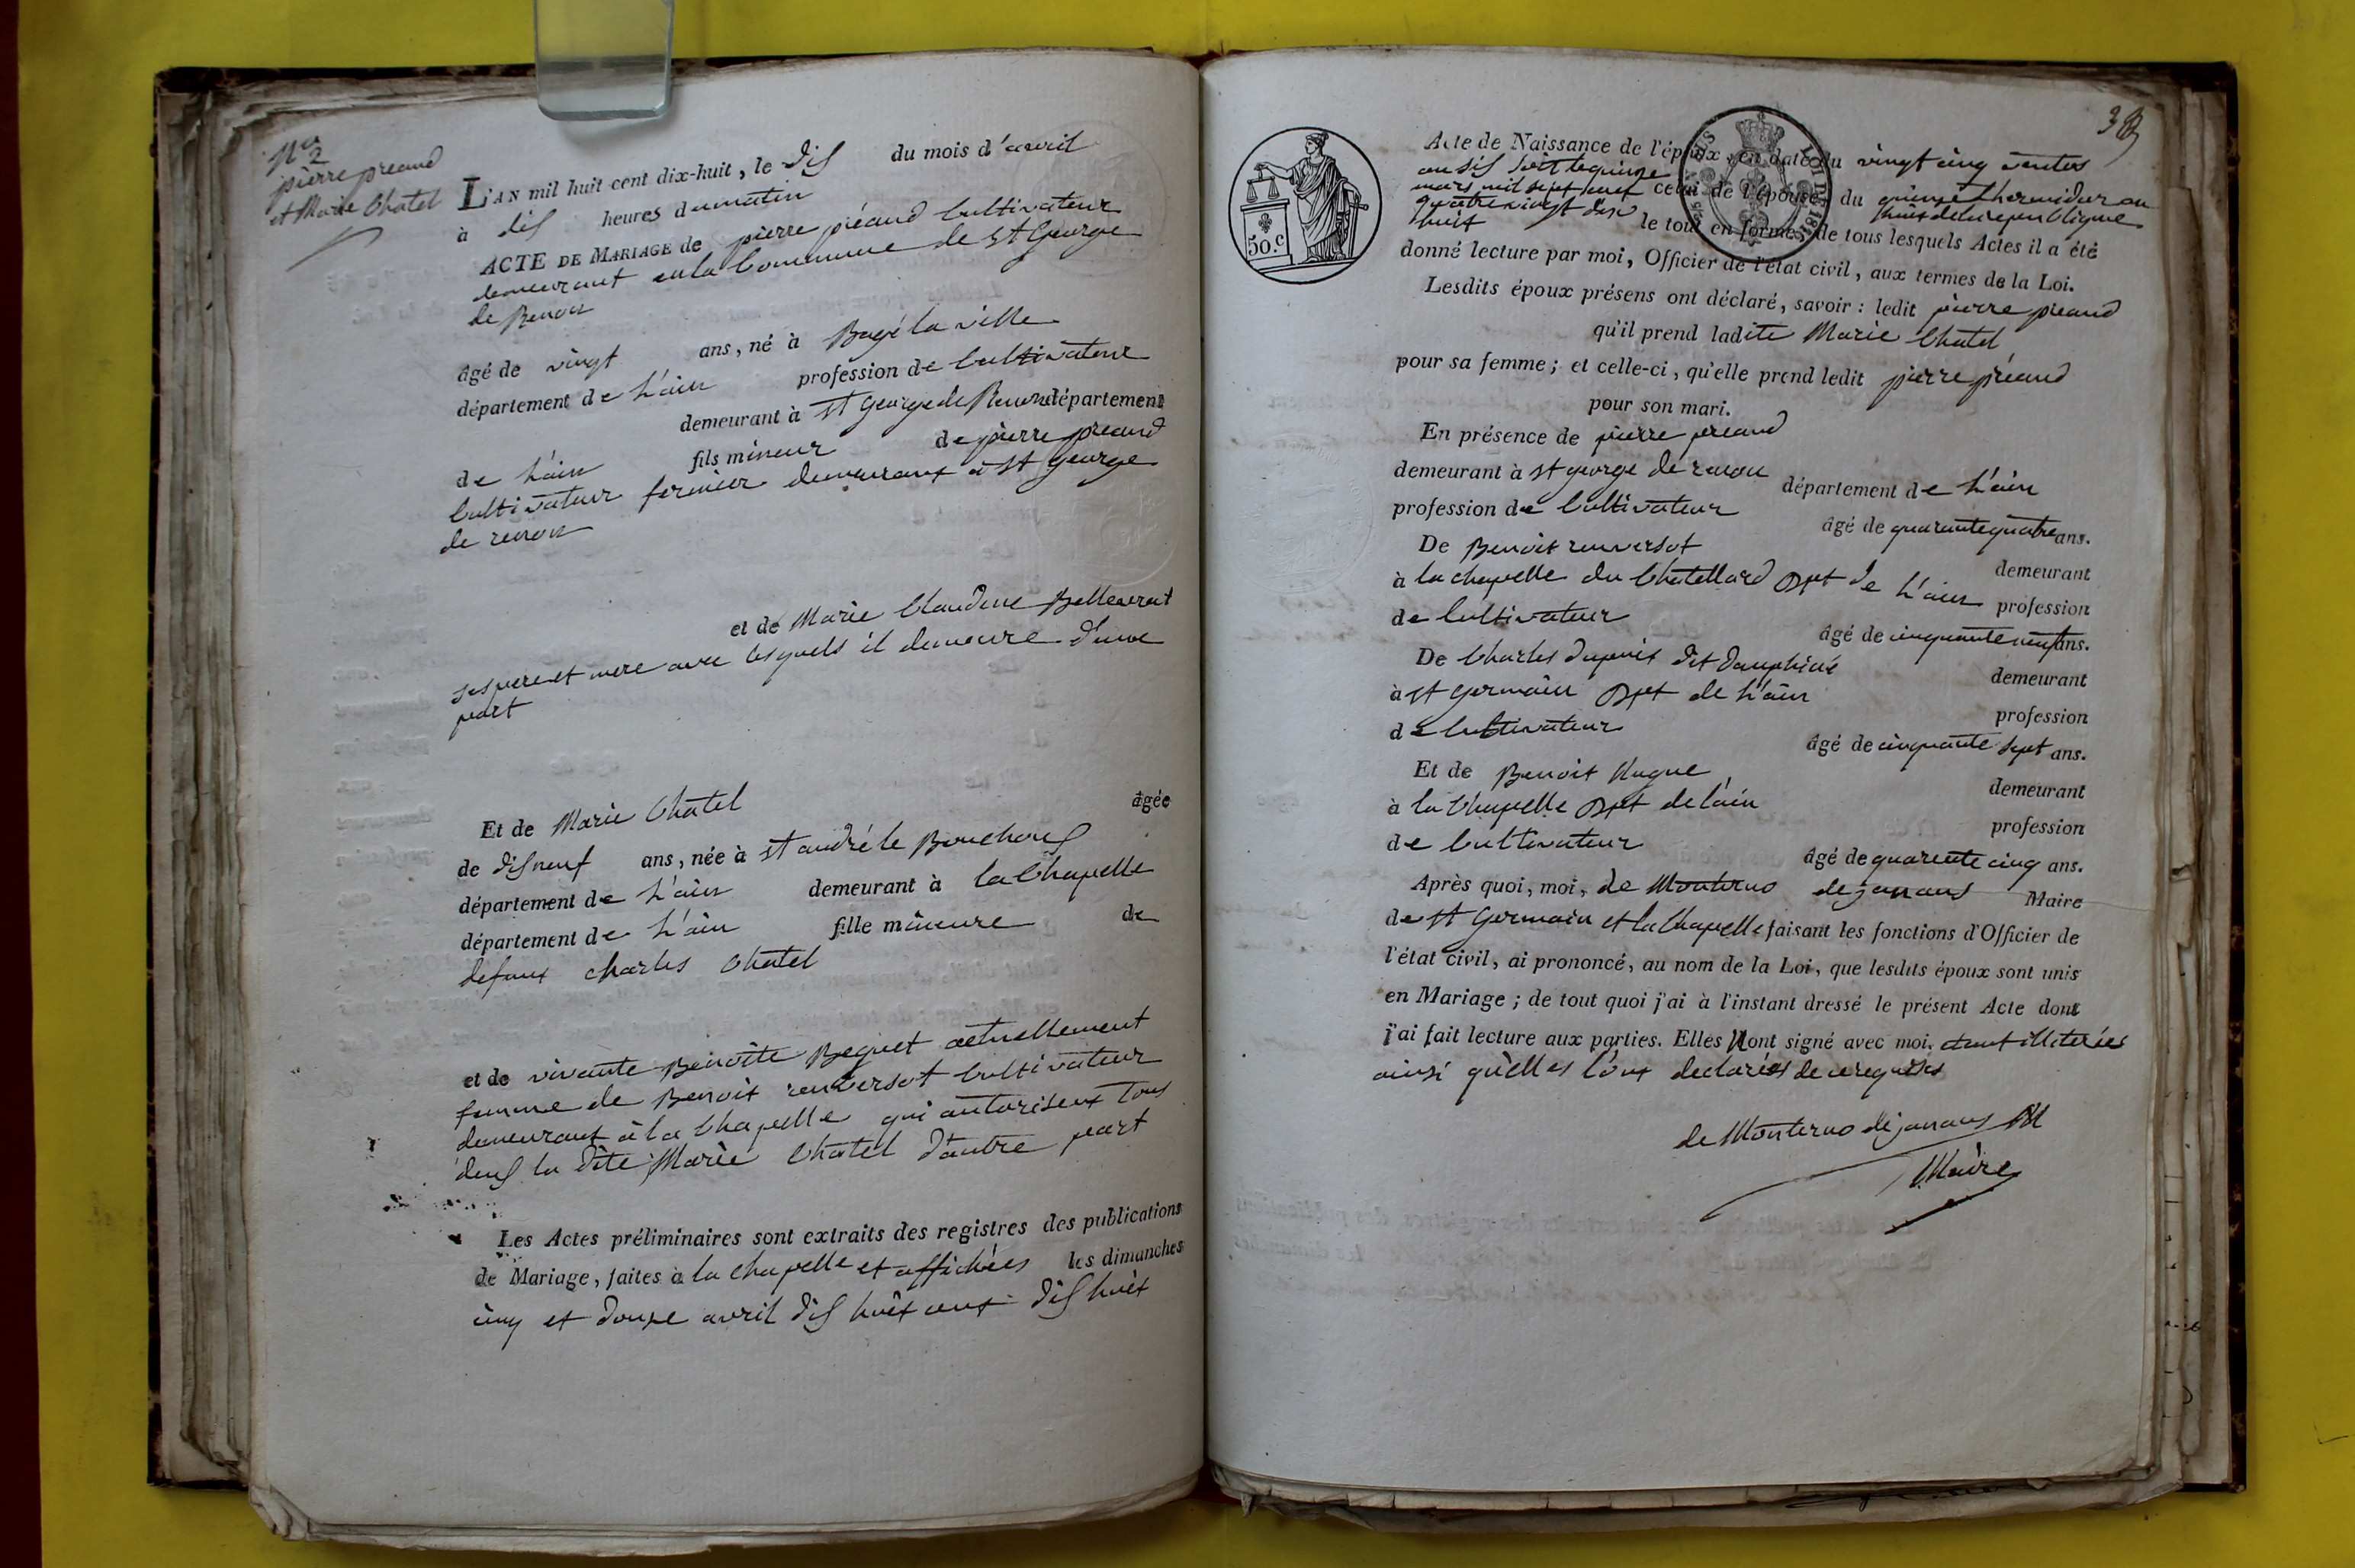 N° 2
pierre preaud
et Marie Chatel
L'AN mil huit cent dix-huit, le dis du mois d'avril
à dis heures du matin
ACTE DE MARIAGE de pierre préaud Cultivateur
demeurant en la Commune de St George
de Renon
âgé de vingt ans, né à Bagé la ville
département de L'ain profession de Cultivateur
demeurant à St George de Renon département
de L'ain fils mineur de pierre preaud
Cultivateur fermier demeurant à St George
de renon
et de Marie Claudine
ses pere et mere avec lesquels il demeure d'une
part
Et de Marie Chatel âgée
de disneuf ans, née à St andré le Bouchous
département de L'ain demeurant à la Chapelle
département de L'ain fille mineure de
defunt Charles Chatel
et de vivante Benoîte Beguet actuellement
femme de Benoit renversot Cultivateur
demeurant à la Chapelle qui autorisent tous
deus la dite Marie Chatel d'autre part
Les Actes préliminaires sont extraits des registres des publications
de Mariage, faites à la Chapelle et affichées les dimanches
cinq et douze avril dis huit cent dis huit
38
Acte de Naissance de l'époux, en date du vingt cinq ventos
an sis soit le quinze
mars mil sept cent celui de l'épouse, du quinse thermidor an
quatre vingt dix huit de la republique
huit le tout en formes, de tous lesquels Actes il a été
50.c
donné lecture par moi, Officier de l'état civil, aux termes de la Loi.
Lesdits époux présens ont déclaré, savoir : ledit pierre preaud
qu'il prend ladite Marie Chatel
pour sa femme ; et celle-ci, qu'elle prend ledit pierre préaud
pour son mari.
En présence de pierre preaud
demeurant à St george de renon département de L'ain
profession de Cultivateur âgé de quarante quatre ans.
De Benoit renversot demeurant
à la chapelle du Chatellard Dpt de L'ain profession
de Cultivateur âgé de cinquante neuf ans.
De Charles dupuis dit dauphiné demeurant
à St Germain Dpt de L'ain profession
de Cultivateur âgé de cinquante sept ans.
Et de Benoit Hugue demeurant
à la Chapelle Dpt de L'ain profession
de Cultivateur âgé de quarente cinq ans.
Après quoi, moi, de Monterno dejanans Maire
de St Germain et la Chapelle faisant les fonctions d'Officier de
l'état civil, ai prononcé, au nom de la Loi, que lesdits époux sont unis
en Mariage ; de tout quoi j'ai à l'instant dressé le présent Acte dont
j'ai fait lecture aux parties. Elles N'ont signé avec moi. etant illiterées
ainsi qu'elles l'ont declarées de ce requises
de Monterno dejanans
Maire